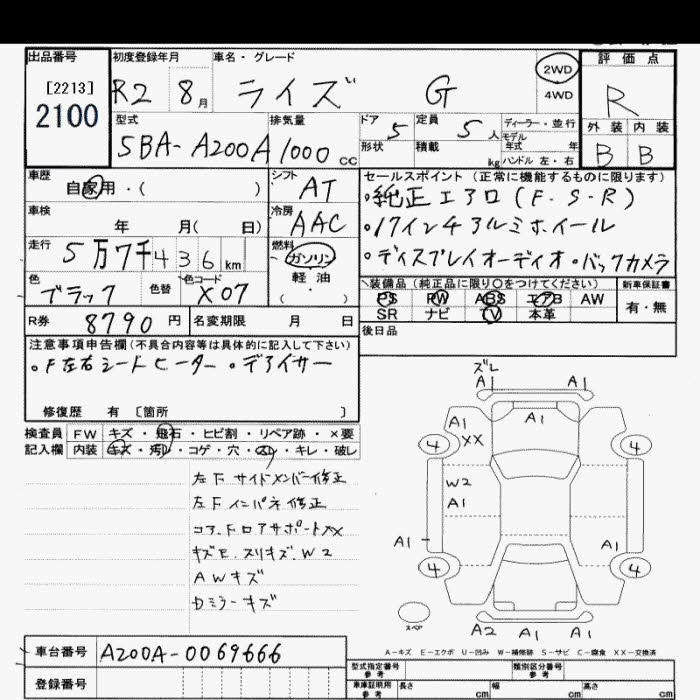 出品番号
[2213]
2100
初度登録年月
R2 8月
車名・グレード
ライズ G
2WD
4WD
評価点
R
外装 内装
B B
型式
5BA-A200A
排気量
1000 cc
ドア 5
定員 5人
形状
積載 kg
ディーラー・並行
モデル
年式 年
ハンドル 左・右
車歴
自家用・( )
シフト
AT
セールスポイント(正常に機能するものに限ります)
・純正エアロ(F.S.R)
・17インチアルミホイール
・ディスプレイオーディオ・バックカメラ
車検
年 月( 日)
冷房
AAC
走行
5万7千436km
燃料
ガソリン
軽油
( ・ )
色
ブラック
色替
色コード
X07
装備品(純正品に限り〇をつけてください)
PS PW ABS エアB AW
SR ナビ TV 本革
新車保証書
有・無
R券 8790円
名変期限 月 日
後日品
注意事項申告欄(不具合内容等は具体的に記入して下さい)
・F左右シートヒーター・デアイサー
修復歴 有 〔箇所 〕
検査員 FW キズ・飛石・ヒビ割・リペア跡・×要
記入欄 内装 キズ・汚レ・コゲ・穴・スレ・キレ・破レ
左Fサイドメンバー修正
左Fインパネ修正
コア.FロアサポートXX
キズE.スリキズ.W2
AWキズ
Dミラーキズ
ズレ
A1 A1
A1 A1
XX
4 4
W2
A1
A1 A1
4 4
スペア
A2 A1 A1
A-キズ E-エクボ U-凹み W-補修跡 S-サビ C-腐食 XX-交換済
車台番号 A200A-0069666
登録番号
型式指定番号
参考
類別区分番号
参考
車庫証明用
参考
長さ cm
幅 cm
高さ cm